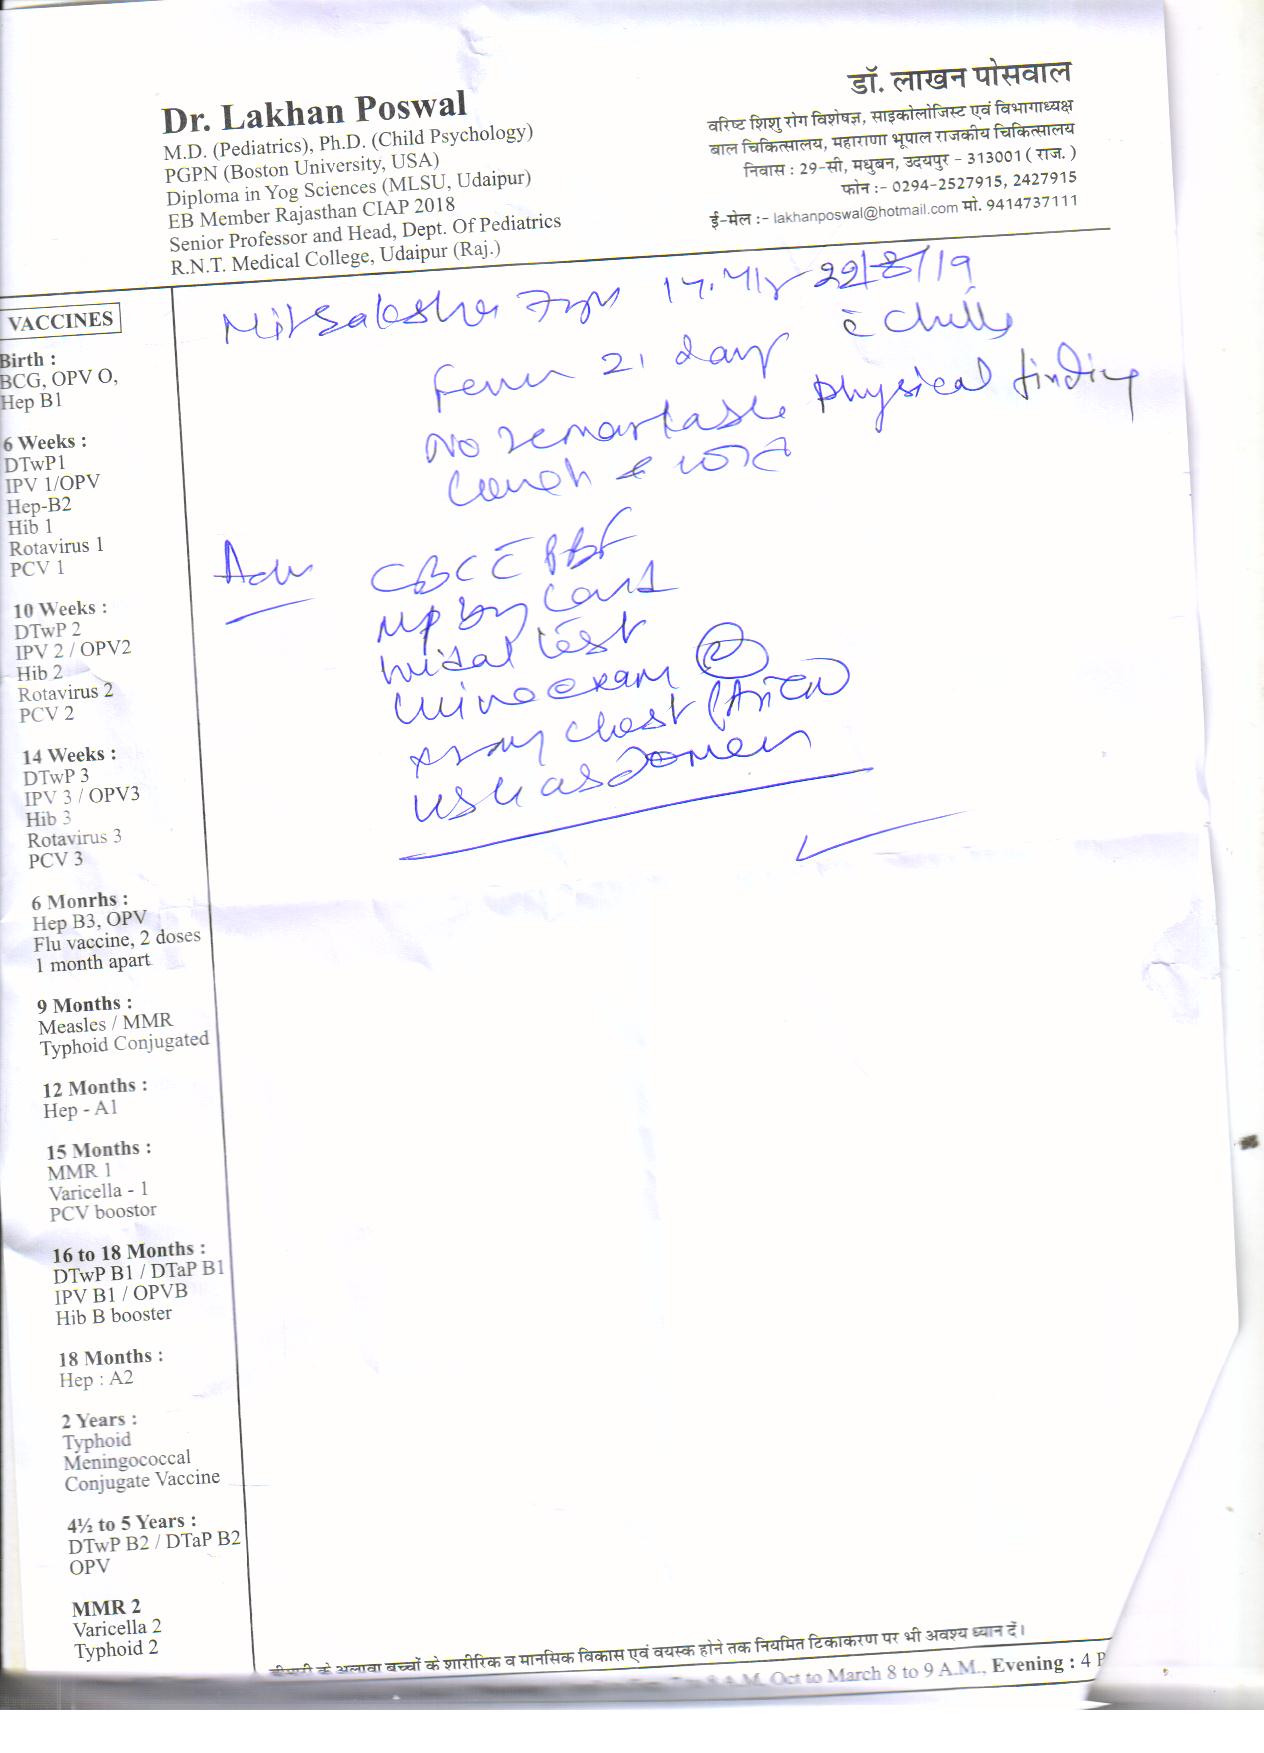 Dr. Lakhan Poswal
M.D. (Pediatrics), Ph.D. (Child Psychology)
PGPN (Boston University, USA)
Diploma in Yog Sciences (MLSU, Udaipur)
EB Member Rajasthan CIAP 2018
Senior Professor and Head, Dept. Of Pediatrics
R.N.T. Medical College, Udaipur (Raj.)
डॉ. लाखन पोसवाल
वरिष्ट शिशु रोग विशेषज्ञ, साइकोलोजिस्ट एवं विभागाध्यक्ष
बाल चिकित्सालय, महाराणा भूपाल राजकीय चिकित्सालय
निवास : 29-सी, मधुबन, उदयपुर - 313001 ( राज. )
फोन :- 0294-2527915, 2427915
ई-मेल :- lakhanposwal@hotmail.com मो. 9414737111
22/8/19
Fever 21 day c̄ chills
No remarkable physical finding
Adv CBC c̄ PBF
MP by Card
widal test
urine exam
Xray chest
USG abdomen
VACCINES
Birth :
BCG, OPV O,
Hep B1
6 Weeks :
DTwP1
IPV 1/OPV
Hep-B2
Hib 1
Rotavirus 1
PCV 1
10 Weeks :
DTwP 2
IPV 2 / OPV2
Hib 2
Rotavirus 2
PCV 2
14 Weeks :
DTwP 3
IPV 3 / OPV3
Hib 3
Rotavirus 3
PCV 3
6 Monrhs :
Hep B3, OPV
Flu vaccine, 2 doses
1 month apart
9 Months :
Measles / MMR
Typhoid Conjugated
12 Months :
Hep - A1
15 Months :
MMR 1
Varicella - 1
PCV boostor
16 to 18 Months :
DTwP B1 / DTaP B1
IPV B1 / OPVB
Hib B booster
18 Months :
Hep : A2
2 Years :
Typhoid
Meningococcal
Conjugate Vaccine
4½ to 5 Years :
DTwP B2 / DTaP B2
OPV
MMR 2
Varicella 2
Typhoid 2
के अलावा बच्चों के शारीरिक व मानसिक विकास एवं वयस्क होने तक नियमित टिकाकरण पर भी अवश्य ध्यान दें।
A.M. Oct to March 8 to 9 A.M., Evening : 4